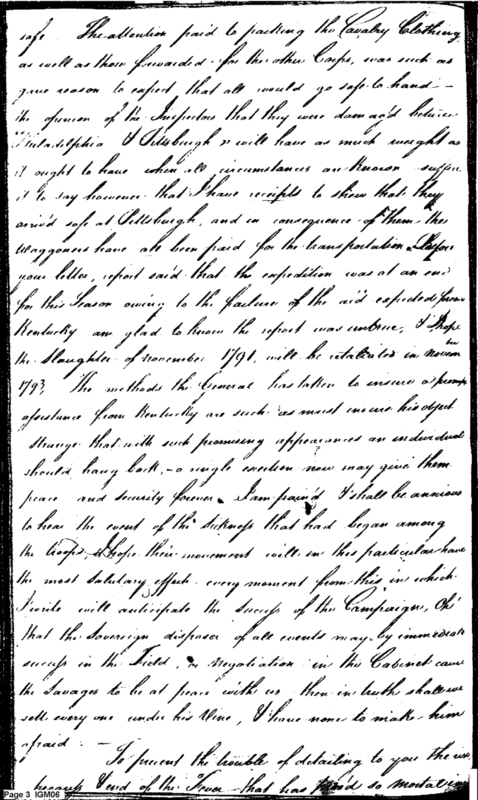 safe. The attention paid to packing the Cavalry Clothing
as well as those forwarded for the other Corps, was such as
gave reason to expect that all would go safe to hand -
the opinion of the Inspectors that they were damag'd between
Philadelphia & Pittsburgh will have as much weight as
it ought to have when all circumstances are known suffice
it to say however that I have receipts to shew that they
arriv'd safe at Pittsburgh, and in consequence of them the
Waggoners have all been paid for the transportation. Before
your letter, report said that the expedition was at an end
for this Season owing to the failure of the aid expected from
Kentucky am glad to know the report was untrue, & I hope
the slaughter of november 1791, will be retaliated in Novem
ber
1793. The methods the General has taken to insure a prompt
assistance from Kentucky are such as must insure his object
strange that with such promising appearances an individual
should hang back, - a single exertion now may give them
peace and security forever. I am pain'd & shall be anxious
to hear the event of the sickness that had began among
the troops, I hope their movement will in this particular have
the most salutary effect. every moment from this in which
I write will anticipate the success of the Campaign, Oh!
that the Sovereign disposer of all events may by immediate
success in the Field, or negotiation in the Cabinet cause
the Savages to be at peace with us, then in truth shall we
sett every one under his Vine, & have none to make him
afraid. -
To prevent the trouble of detailing to you the
progress & end of the Fever that has prov'd so mortal
Page 3 IGM06